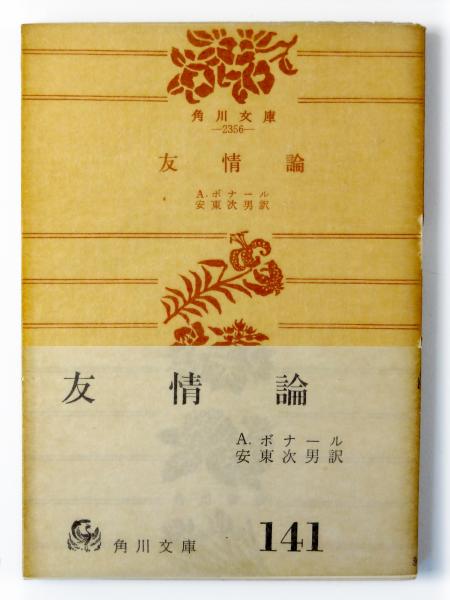 角川文庫
—2356—
友情論
A.ボナール
安東次男訳
友情論
A.ボナール
安東次男訳
角川文庫 141